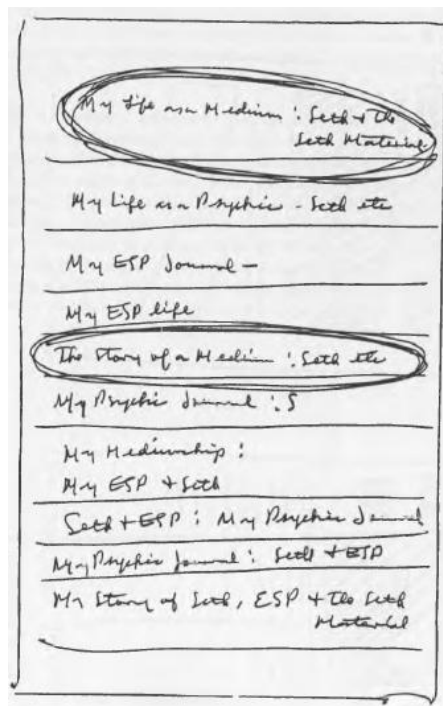 My Life as a Medium : Seth & the
Seth Material
My Life as a Psychic - Seth etc
My ESP Journal -
My ESP life
The Story of a Medium : Seth etc
My Psychic Journal : S
My Mediumship :
My ESP + Seth
Seth + ESP : My Psychic Journal
My Psychic Journal : Seth + ESP
My Story of Seth, ESP + the Seth
Material